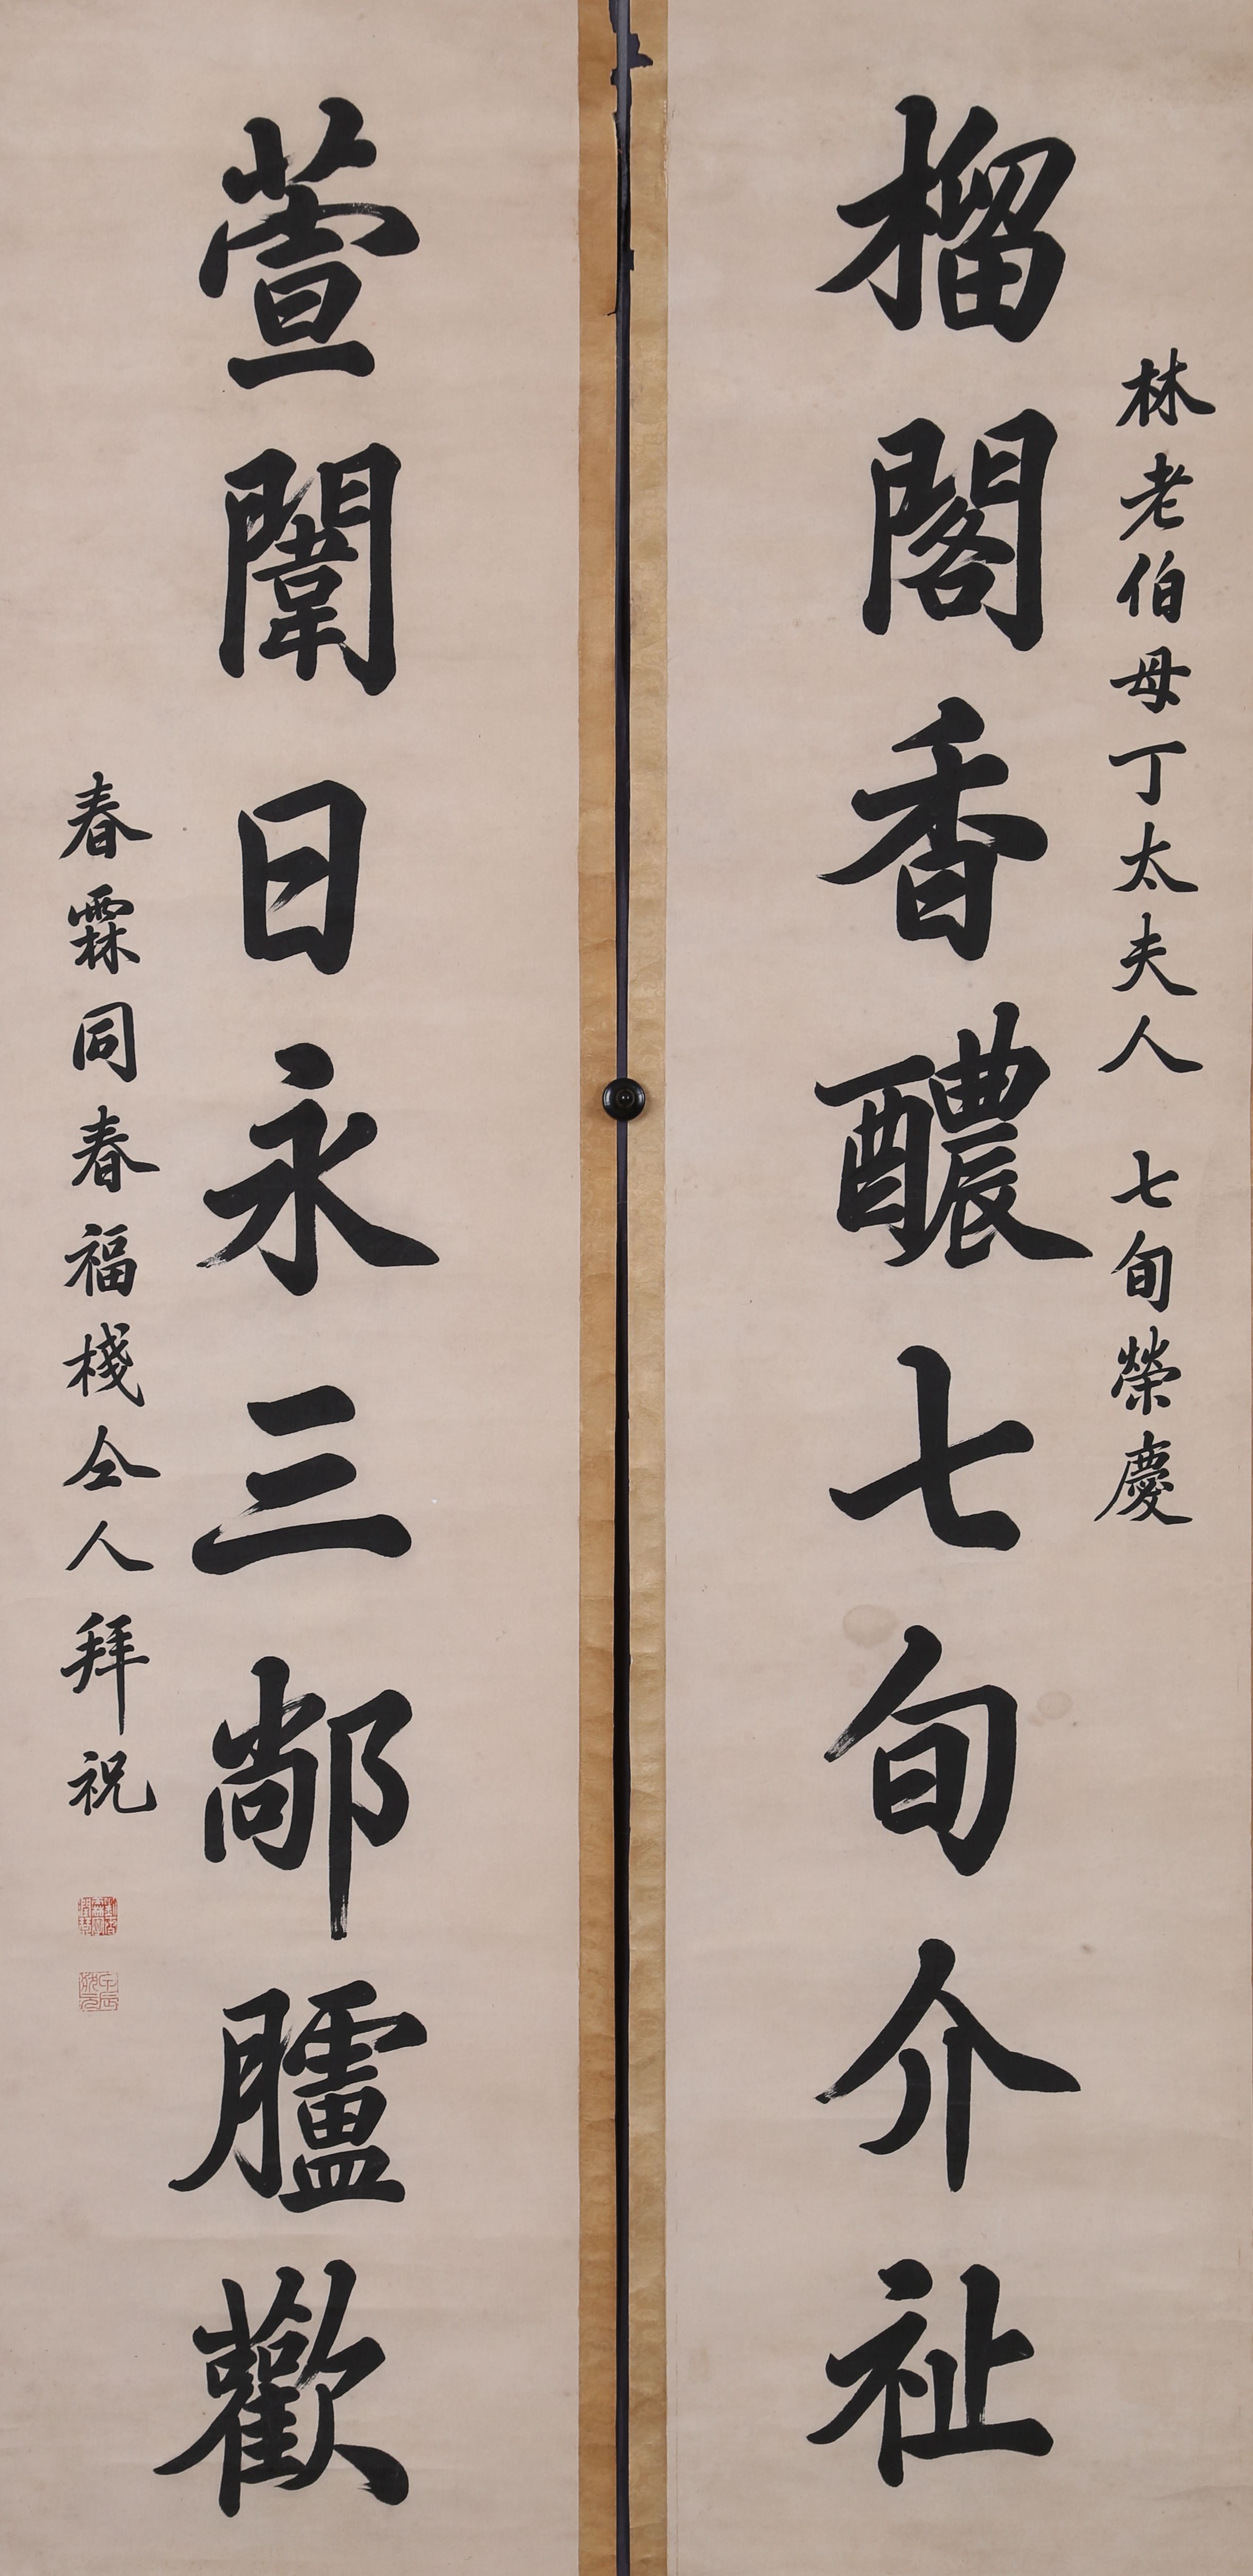 林老伯母丁太夫人 七旬榮慶
榴閣香醲七旬介祉
萱闈日永三鄗臚歡
春霖同春福棧仝人拜祝